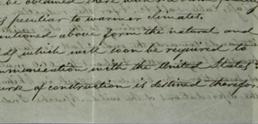 peculiar to warmer climates.
mentioned above form the natural and
which will soon be required to
communication with the United States
work of construction is destined therefor